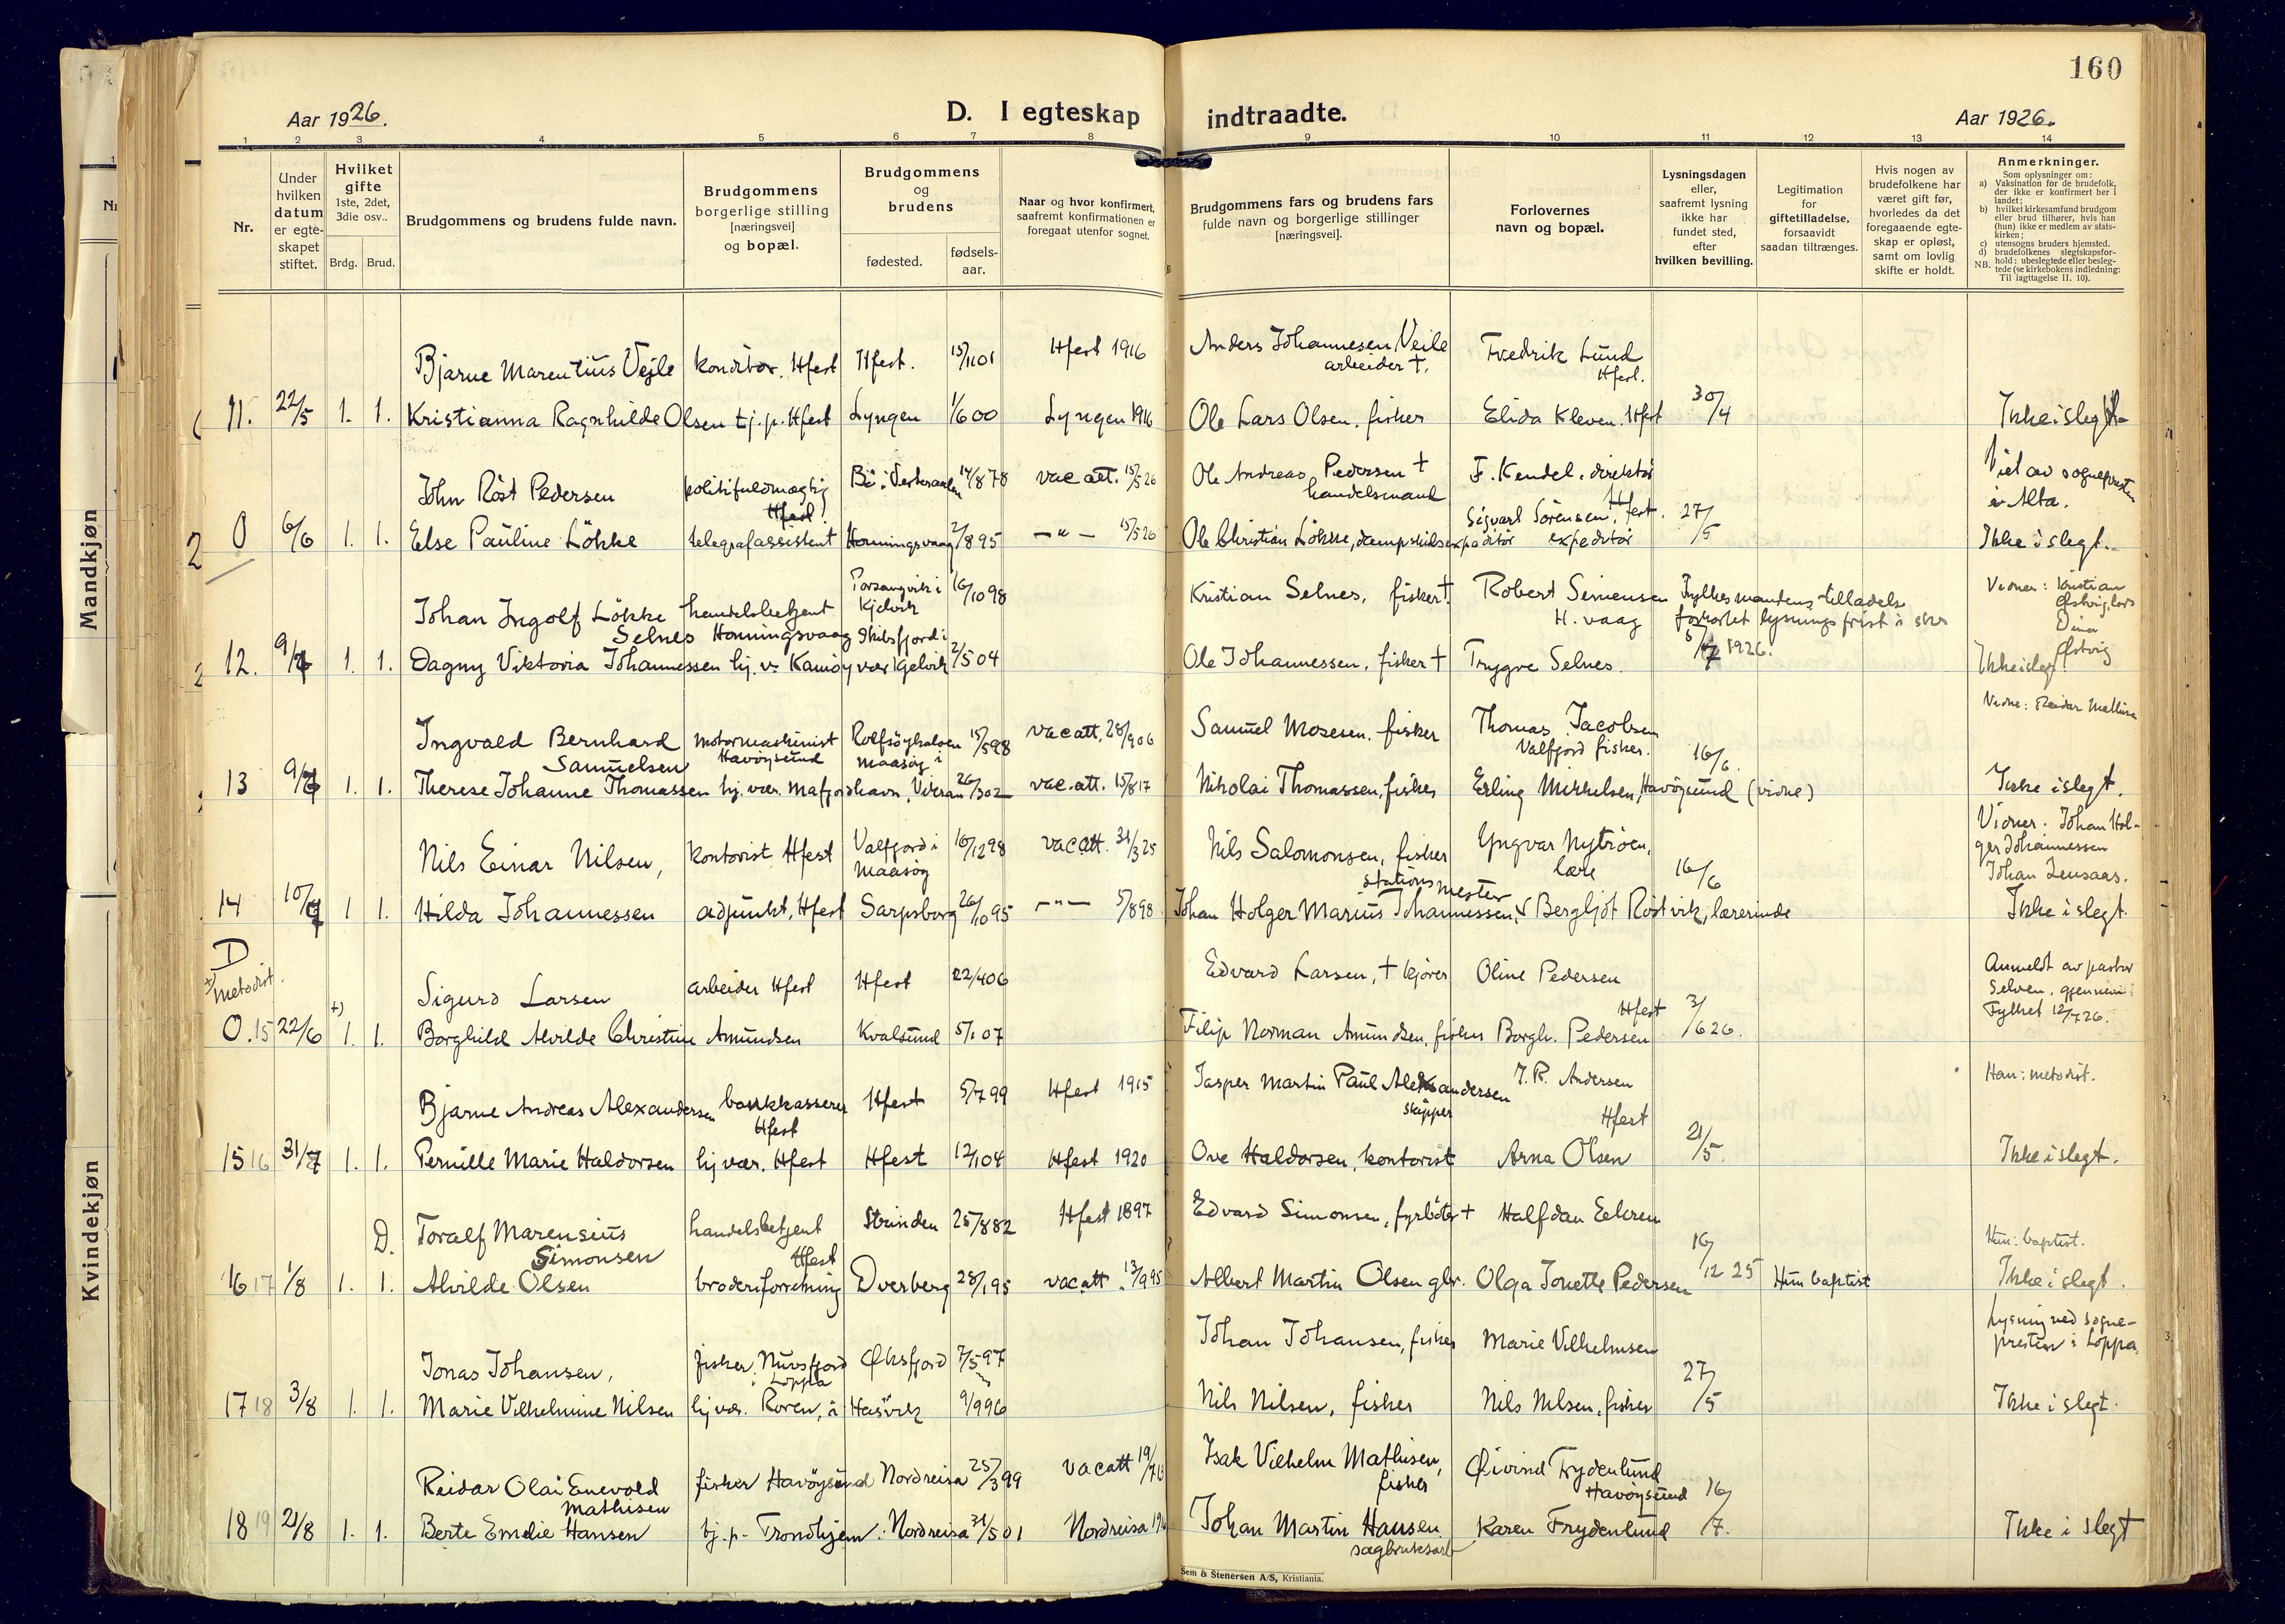 160
Aar 1926.
D. I egteskap indtraadte.
Aar 1926.
1 2 3 4 5 6 7 8 9 10 11 12 13 14
Nr.
Under hvilken datum er egteskapet stiftet.
Hvilket gifte 1ste, 2det, 3die osv..
Brdg. Brud.
Brudgommens og brudens fulde navn.
Brudgommens borgerlige stilling [næringsvei] og bopæl.
Brudgommens og brudens
fødested. fødsels-aar.
Naar og hvor konfirmert, saafremt konfirmationen er foregaat utenfor sognet.
Brudgommens fars og brudens fars fulde navn og borgerlige stillinger [næringsvei].
Forlovernes navn og bopæl.
Lysningsdagen eller, saafremt lysning ikke har fundet sted, efter hvilken bevilling.
Legitimation for giftetilladelse, forsaavidt saadan tiltrænges.
Hvis nogen av brudefolkene har været gift før, hvorledes da det foregaaende egte-skap er opløst, samt om lovlig skifte er holdt.
Anmerkninger.
Som oplysninger om:
a) Vaksination for de brudefolk, der ikke er konfirmert her i landet;
b) hvilket kirkesamfund brudgom eller brud tilhører, hvis han (hun) ikke er medlem av stats-kirken;
c) utensogns bruders hjemsted.
d) brudefolkenes slegtskapsfor-hold: ubeslegtede eller besleg-tede (se kirkebokens indledning: Til iagttagelse II. 10).
NB.
Mandkjøn
Kvindekjøn
Bjarne Marentius Vejle konditor. Hfest Hfest. 15/11 01 Hfest 1916 Anders Johannesen Veile arbeider †. Fredrik Lund Hfest.
11. 22/5 1. 1. Kristianna Ragnhilde Olsen tj.p. Hfest Lyngen 1/6 00 Lyngen 1916 Ole Lars Olsen. fisker Elida Kleven. Hfest 30/4 Ikke i slegt
John Röst Pedersen politifuldmægtig Hfest Bö i Vesteraalen 14/8 78 vac att. 15/5 26 Ole Andreas Pedersen † handelsmand F. Kendel. direktör Hfest. Viet av sognepresten i Alta.
0 6/6 1. 1. Else Pauline Lökke telegrafassistent Honningsvaag 2/8 95 – " – 15/5 26 Ole Christian Lökke, dampskibsexpeditör Sigvart Sörensen, expeditör 27/5 Ikke i slegt.
Johan Ingolf Lökke Selnes handelsbetjent Honningsvaag Porsangvik i Kjelvik 16/10 98 Kristian Selnes, fisker †. Robert Simensen H. vaag Fylkesmandens tilladelse forkortet lysningsfrist 5/7 1926. Vidner: Kristian
12. 9/7 1. 1. Dagny Viktoria Johannessen hj. v. Kamöyvær Skibsfjord i Kjelvik 2/5 04 Ole Johannessen, fisker † Trygve Selnes. Ikke i slegt
Ingvald Bernhard Samuelsen motormaskinist Havöysund Rolfsöyhavn i Maasöy 15/5 98 vac att. 28/9 06 Samuel Mosesen. fisker Thomas Jacobsen Valfjord fisker. Vidne: Reidar Mathisen
13 9/7 1. 1. Therese Johanne Thomassen hj. vær. Mafjordhavn, 26/3 02 vac. att. 15/8 17 Nikolai Thomassen, fisker Erling Mikkelsen, Havöysund (vidne) 16/6. Ikke i slegt.
Nils Einar Nilsen, kontorist Hfest Valfjord i Maasöy 16/12 98 vac att. 31/3 25 Nils Salomonsen, fisker Yngvar Nytröen, Vidner: Johan Holger Johannessen
14 10/7 1 1. Hilda Johannessen adjunkt, Hfest Sarpsborg 26/10 95 – " – 5/8 98 Johan Holger Marius Johannessen, stationsmester Bergljot Röstvik, lærerinde 16/6 Ikke i slegt.
D
+) metodist.
Sigurd Larsen arbeider Hfest Hfest 22/4 06 Edvard Larsen, † kjörer Oline Pedersen Hfest Anmeldt av pastor Selven, gjennem Fylket 12/7 26.
0. 15 22/6 +) 1. 1. Borghild Alvilde Christine Amundsen Kvalsund 5/1 07 Filip Norman Amundsen, fisker Borgh. Pedersen 3/6 26.
Bjarne Andreas Alexandersen bankkasserer Hfest Hfest 5/7 99 Hfest 1915 Jasper Martin Paul Alexandersen skipper J. R. Andersen Hfest Han: metodist.
15 16 31/7 1. 1. Pernille Marie Haldorsen hj vær. Hfest Hfest 12/1 04 Hfest 1920 Ove Haldorsen, kontorist Arna Olsen 21/5. Ikke i slegt.
D. Toralf Marensius Simonsen handelsbetjent Hfest Strinden 25/8 82 Hfest 1897 Edvard Simonsen, fyrböter † Halfdan Eekren Hun: baptist.
16 17 1/8 1. 1. Alvilde Olsen broderiforretning Dverberg 28/1 95 vac att. 13/9 95 Albert Martin Olsen gbr. Olga Jonette Pedersen 16/12 25 Hun baptist Ikke i slegt.
Jonas Johansen, fisker, Nuvsfjord i Loppa Øksfjord 7/5 97 Johan Johansen, fisker Marie Vilhelmsen Lysning ved sogne-presten i Loppa.
17 18 3/8 1. 1. Marie Vilhelmine Nilsen hj vær. Hasvik 9/9 96 Nils Nilsen, fisker Nils Nilsen, fisker 27/5 Ikke i slegt.
Reidar Olai Enevold Mathisen fisker Havöysund Nordreisa 25/3 99 vac att 19/7 Isak Vilhelm Mathisen, fisker Øivind Frydenlund Havöysund
18 19 21/8 1. 1. Berte Emelie Hansen tj. p. Trondhjem Nordreisa 31/5 01 Nordreisa Johan Martin Hansen sagbruksarb Karen Frydenlund 16/7. Ikke i slegt
Sem & Stenersen A/S, Kristiania.